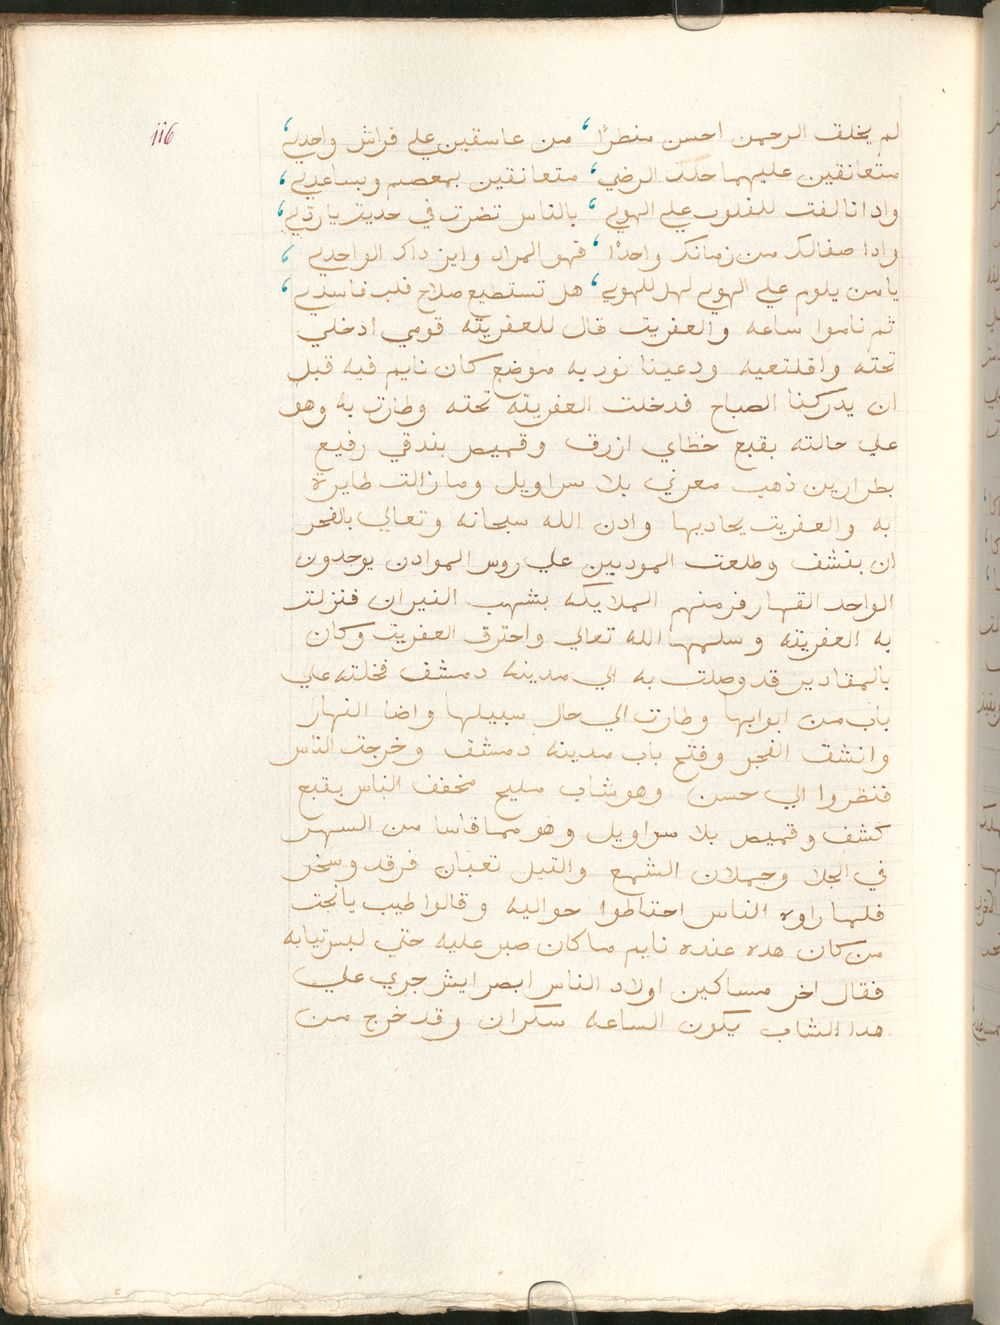 116
لم يخلق الرحمن احسن منظرًا، من عاسقين علي فراش واحدي،
متعانقين عليهما حلل الرضي، متعانقين بمعصم وبساعدي،
وادا تالفت للقلوب علي الهوي، بالناس تضرب في حديد باردي،
وادا صفالك من زمانك واحدًا، فهو المراد واين داك الواحدي،
يا من يلوم علي الهوي اهل الهوي، هل تستطيع صلاح قلب فاسدي،
ثم ناموا ساعه والعفريت قال للعفريته قومي ادخلي
تحته واقلعيه ودعينا نوديه موضع كان نايم فيه قبل
ان يدركنا الصباح فدخلت العفريته تحته وطارت به وهو
علي حالته بقبع خطاي ازرق وقميص بندقي رفيع
بطرازين ذهب مغربي بلا سراويل وما زالت طايرة
به والعفريت يحاديها وادن الله سبحانه وتعالي بالفجر
ان ينشق وطلعت المودنين علي روس الموادن يوحدون
الواحد القهار فرمتهم الملايكه بشهب النيران فنزلت
به العفريته وسلمها الله تعالي واحترق العفريت وكان
بالمقادير قد وصلت به الي مدينه دمشق فخلته علي
باب من ابوابها وطارت الي حال سبيلها واضا النهار
وانشق الفجر وفتح باب مدينه دمشق وخرجت الناس
فنظروا الي حسن وهو شاب مليح مخفف الناس بقبع
كشف وقميص بلا سراويل وهو مما قاسا من السهر
في الجلا وحملان الشمع والليل تعبان فرقد وسخر
فلما راوه الناس احتاطوا حواليه وقالوا طيب يا بخت
من كان هده عنده نايم ما كان صبر عليه حتي لبس تيابه
فقال اخر مساكين اولاد الناس ابصر ايش جري علي
هدا الشاب يكون الساعه سكران وقد خرج من